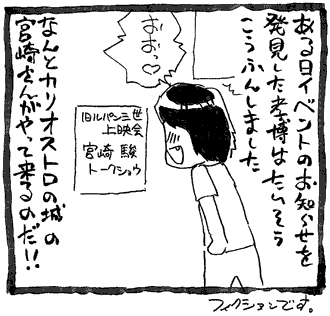 ある日イベントのお知らせを
発見した孝博はたいそう
こうふんしました
おおっ♡
旧ルパン三世
上映会
宮崎 駿
トークショウ
なんとカリオストロの城の
宮崎さんがやって来るのだ!!
フィクションです。